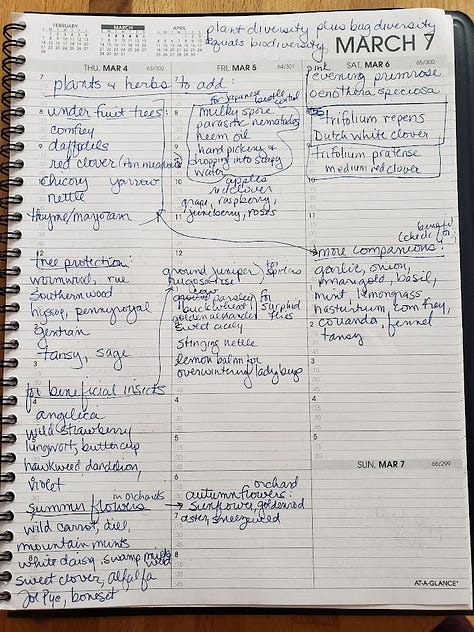 FEBRUARY
MARCH
APRIL
plant diversity plus bug diversity
equals biodiversity
MARCH 7
THU, MAR 4 63/302
FRI, MAR 5 64/301
SAT, MAR 6 65/300
plants & herbs to add:
under fruit trees:
comfrey
daffodils
red clover
chicory yarrow
nettle
thyme/marjoram
tree protection:
wormwood, rue
southernwood
hyssop, pennyroyal
gentian
tansy, sage
for beneficial insects
angelica
wild strawberry
lungwort, buttercup
hawkweed, dandelion,
violet
summer flowers in orchards
wild carrot, dill,
mountain mints
white daisy, swamp milkweed
sweet clover, alfalfa
Joe Pye, boneset
for japanese beetle control
milky spore
parasitic nematodes
neem oil
hand picking &
dropping into soapy
water
apples
red clover
grape, raspberry,
juneberry, roses
ground juniper
rugosa rose
for spiders
parsley
buckwheat
golden alexander
for syrphid
flies
sweet cicely
stinging nettle
lemon balm for
overwintering ladybugs
orchard
autumn flowers:
sunflower, goldenrod
aster, sneezeweed
pink
evening primrose
oenothera speciosa
trifolium repens
Dutch white clover
trifolium pratense
medium red clover
more companions:
garlic, onion,
marigold, basil,
mint, lemongrass
nasturtium, comfrey,
coriander, fennel
tansy
SUN, MAR 7 66/299
AT-A-GLANCE